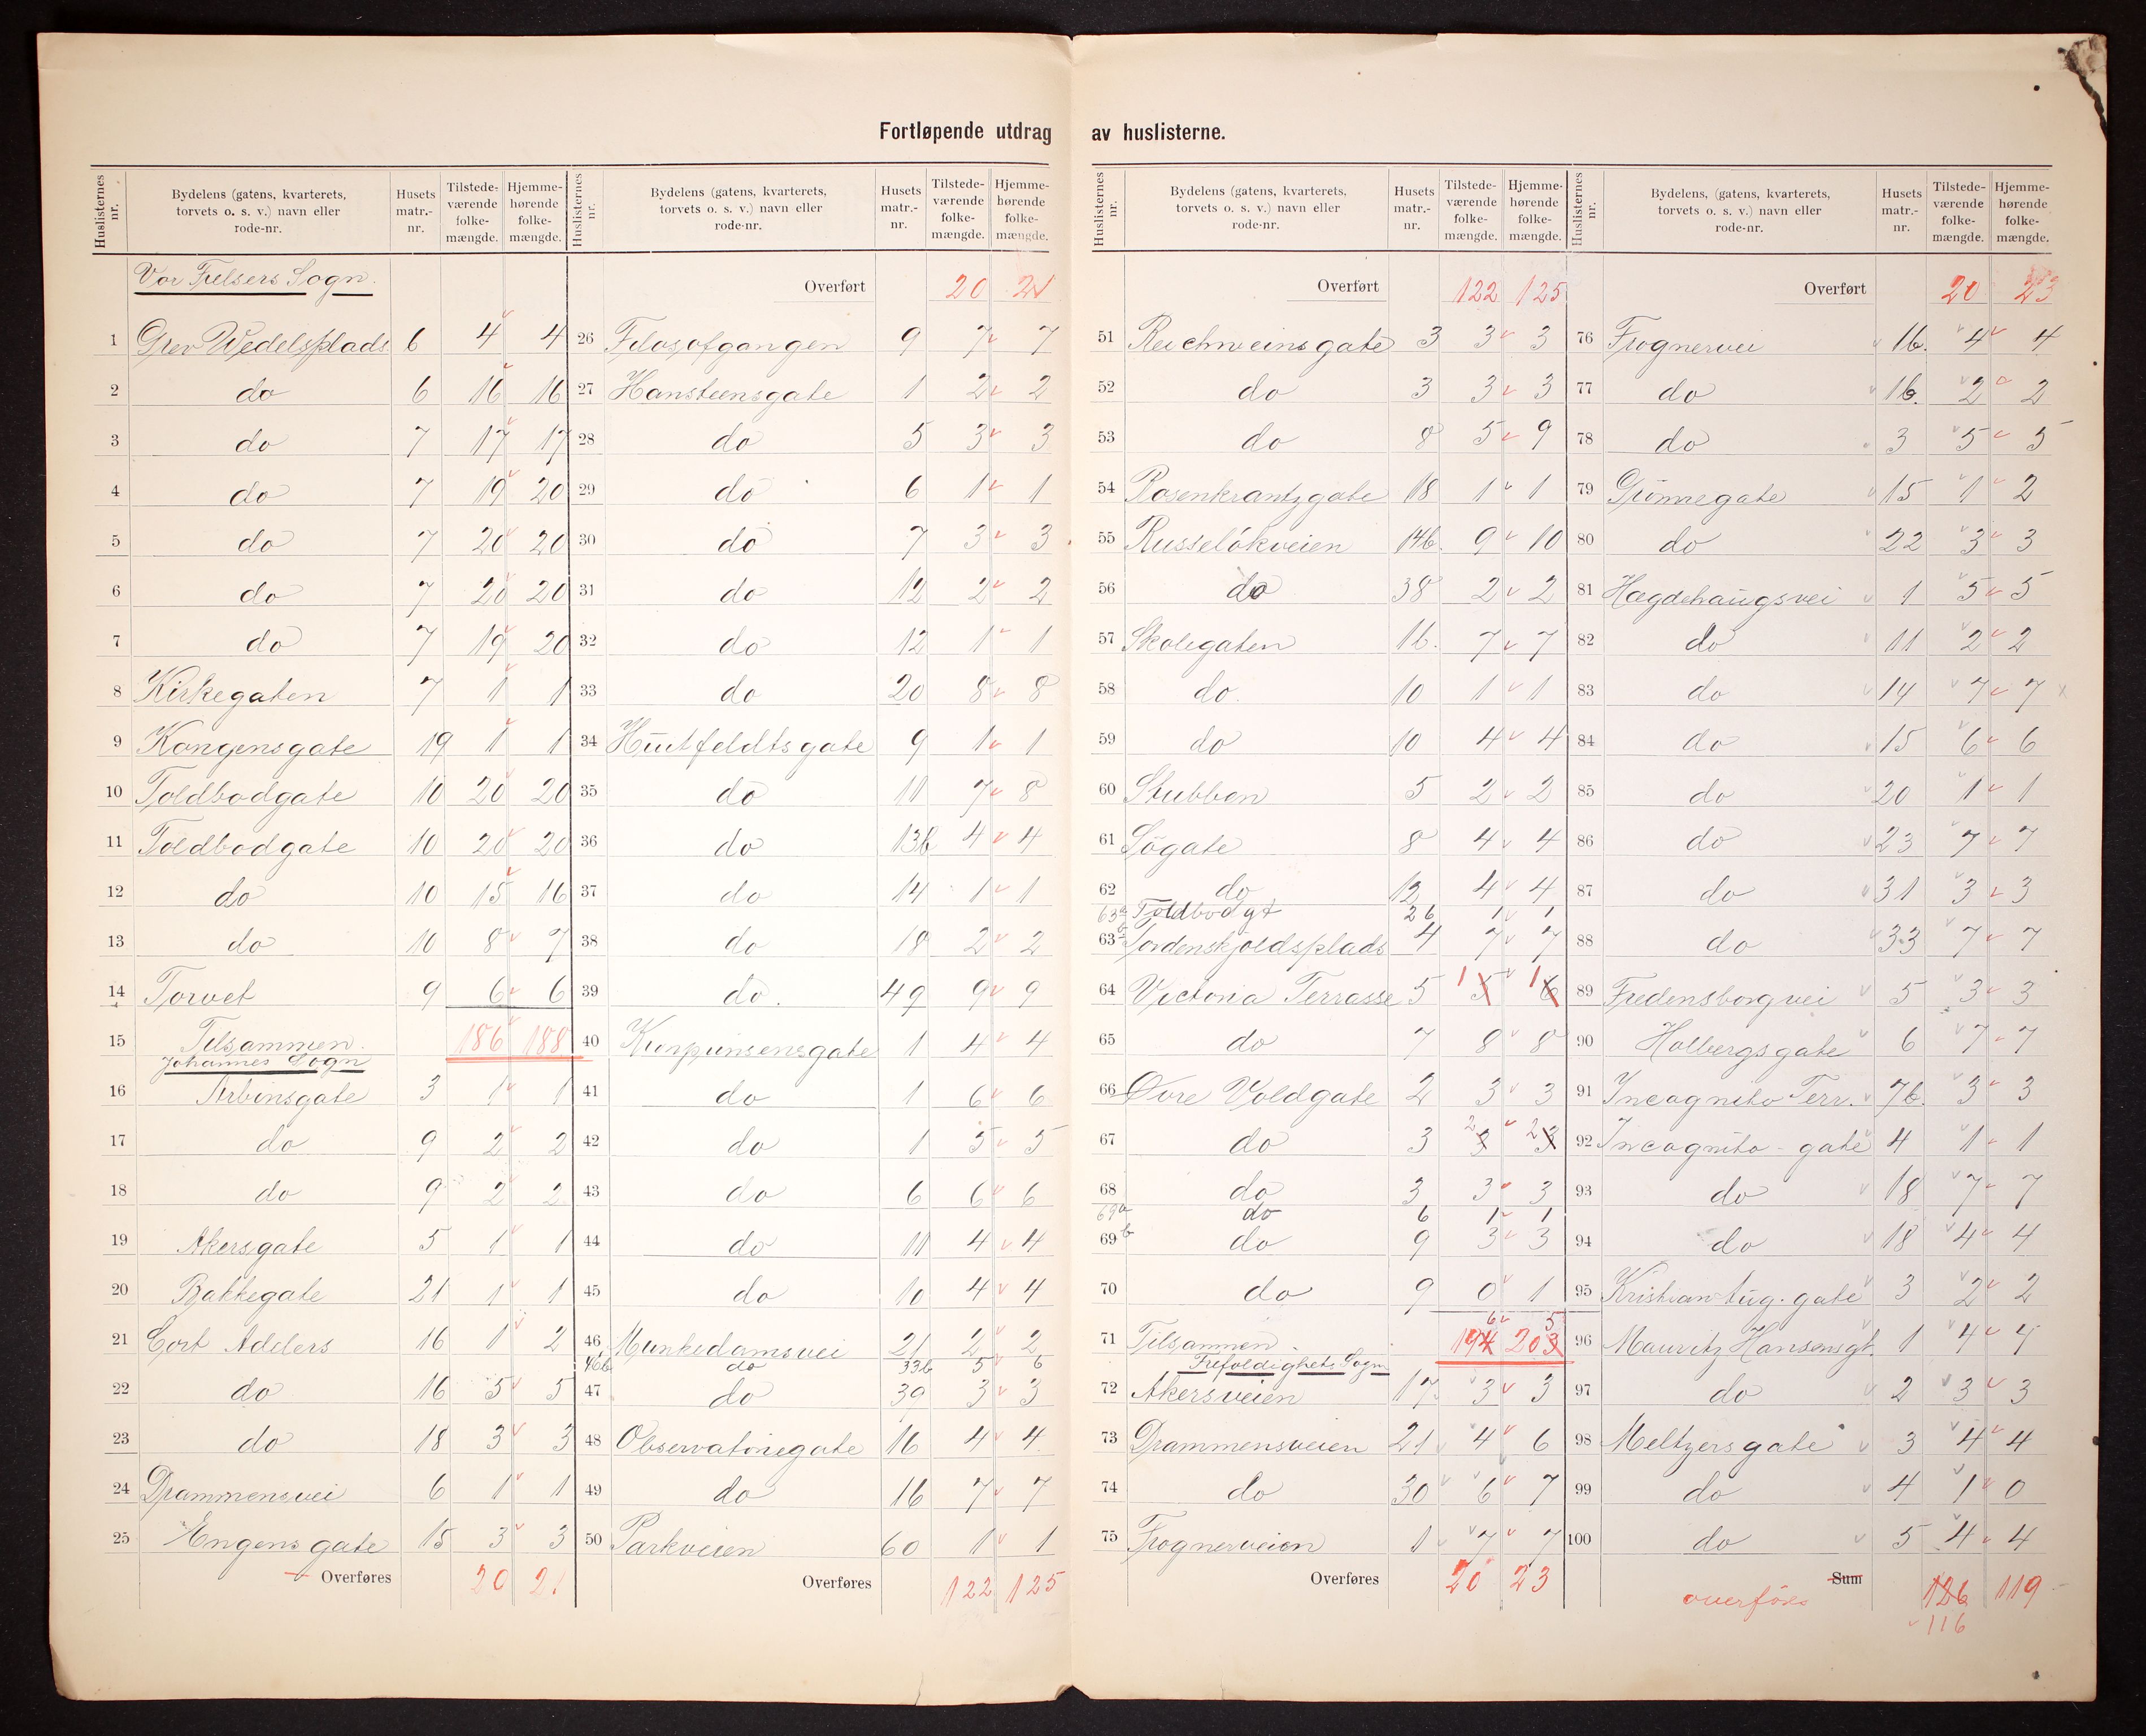 Fortløpende utdrag av huslisterne.
Huslisternes nr. Bydelens (gatens, kvarterets, torvets o. s. v.) navn eller rode-nr. Husets matr.-nr. Tilstedeværende folkemængde. Hjemmehørende folkemængde.
Vor Frelsers Sogn.
1 Grev Wedelsplads 6 4 4
2 do 6 16 16
3 do 7 17 17
4 do 7 19 20
5 do 7 20 20
6 do 7 20 20
7 do 7 19 20
8 Kirkegaten 7 1 1
9 Kongensgate 19 1 1
10 Toldbodgate 10 20 20
11 Toldbodgate 10 20 20
12 do 10 15 16
13 do 10 8 7
14 Torvet 9 6 6
15 Tilsammen. 186 188
Johannes Sogn
16 Arbinsgate 3 1 1
17 do 9 2 2
18 do 9 2 2
19 Akersgate 5 1 1
20 Bakkegate 21 1 1
21 Cort Adelers 16 1 2
22 do 16 5 5
23 do 18 3 3
24 Drammensvei 6 1 1
25 Engens gate 15 3 3
Overføres 20 21
Huslisternes nr. Bydelens (gatens, kvarterets, torvets o. s. v.) navn eller rode-nr. Husets matr.-nr. Tilstedeværende folkemængde. Hjemmehørende folkemængde.
Overført 20 21
26 Filosofgangen 9 7 7
27 Hansteensgate 1 2 2
28 do 5 3 3
29 do 6 1 1
30 do 7 3 3
31 do 12 2 2
32 do 12 1 1
33 do 20 8 8
34 Huitfeldtsgate 9 1 1
35 do 11 7 8
36 do 13b 4 4
37 do 14 1 1
38 do 18 2 2
39 do. 49 9 9
40 Kronprinsensgate 1 4 4
41 do 1 6 6
42 do 1 5 5
43 do 6 6 6
44 do 11 4 4
45 do 10 4 4
46 Munkedamsvei 21 2 2
46b do 33b 5 6
47 do 39 3 3
48 Observatoriegate 16 4 4
49 do 16 7 7
50 Parkveien 60 1 1
Overføres 122 125
Huslisternes nr. Bydelens (gatens, kvarterets, torvets o. s. v.) navn eller rode-nr. Husets matr.-nr. Tilstedeværende folkemængde. Hjemmehørende folkemængde.
Overført 122 125
51 Reichweinsgate 3 3 3
52 do 3 3 3
53 do 8 5 9
54 Rosenkrantzgate 18 1 1
55 Russeløkveien 14b. 9 10
56 do 38 2 2
57 Skolegaten 1b. 7 7
58 do. 10 1 1
59 do 10 4 4
60 Stubben 5 2 2
61 Søgate 8 4 4
62 do 12 4 4
63a Toldbodgt 26 1 1
63b Tordenskjoldsplads 4 7 7
64 Victoria Terrasse 5 1 5 1 6
65 do 7 8 8
66 Øvre Voldgate 2 3 3
67 do 3 2 3 2 3
68 do 3 3 3
69a do 6 1 1
69b do 9 3 3
70 do 9 0 1
71 Tilsammen. 194 6 203 5
Trefoldighets Sogn
72 Akersveien 17 3 3
73 Drammensveien 21 4 6
74 do 30 6 7
75 Frognerveien 1 7 7
Overføres 20 23
Huslisternes nr. Bydelens, (gatens, kvarterets, torvets o. s. v.) navn eller rode-nr. Husets matr.-nr. Tilstedeværende folkemængde. Hjemmehørende folkemængde.
Overført 20 23
76 Frognervei 16. 4 4
77 do 16. 2 2
78 do 3 5 5
79 Grønnegate 15 1 2
80 do 22 3 3
81 Hægdehaugsvei 1 5 5
82 do 11 2 2
83 do 14 7 7 x
84 do 15 6 6
85 do 20 1 1
86 do 23 7 7
87 do 31 3 3
88 do 33 7 7
89 Fredensborgvei 5 3 3
90 Holbergsgate 6 7 7
91 Incognito Terr. 7b. 3 3
92 Incognito-gate 4 1 1
93 do 18 7 7
94 do 18 4 4
95 Kristian Aug. gate 3 2 2
96 Mauritz Hansensgt. 1 4 4
97 do 2 3 3
98 Meltzersgate 3 4 4
99 do 4 1 0
100 do 5 4 4
Sum overføres 126 119
116